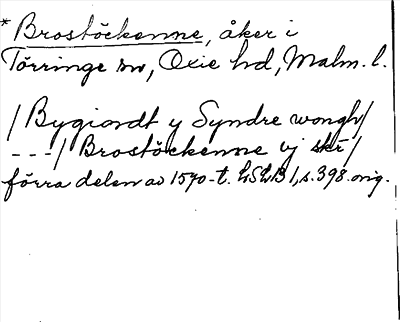 * Brostöckenne, åker i
Törringe sn, Oxie hd, Malm. l.
/ Bygiordt y Syndre wongh /
--- / Brostöckenne vj skr /
förra delen av 1570-t. LSLB 1, s. 398. orig.